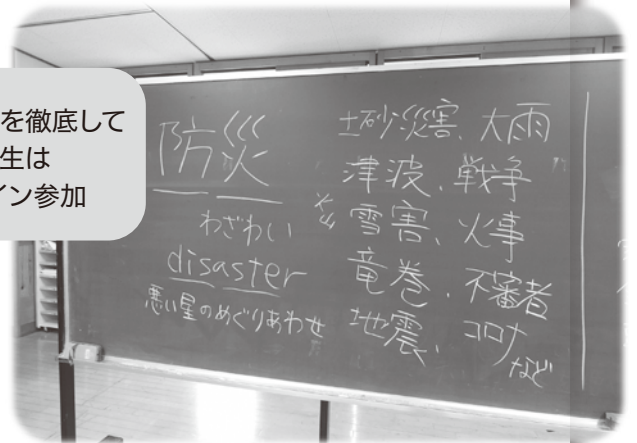 を徹底して
生は
イン参加
防災
わざわい
disaster
悪い星のめぐりあわせ
土砂災害、大雨
津波、戦争
雪害、火事
竜巻、不審者
地震、コロナ
など